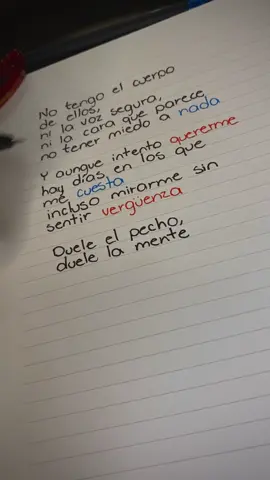 No tengo el cuerpo
de ellos,
ni la voz segura,
ni la cara que parece
no tener miedo a nada
Y aunque intento quererme
hay días en los que
me cuesta
incluso mirarme sin
sentir vergüenza
Duele el pecho,
duele la mente